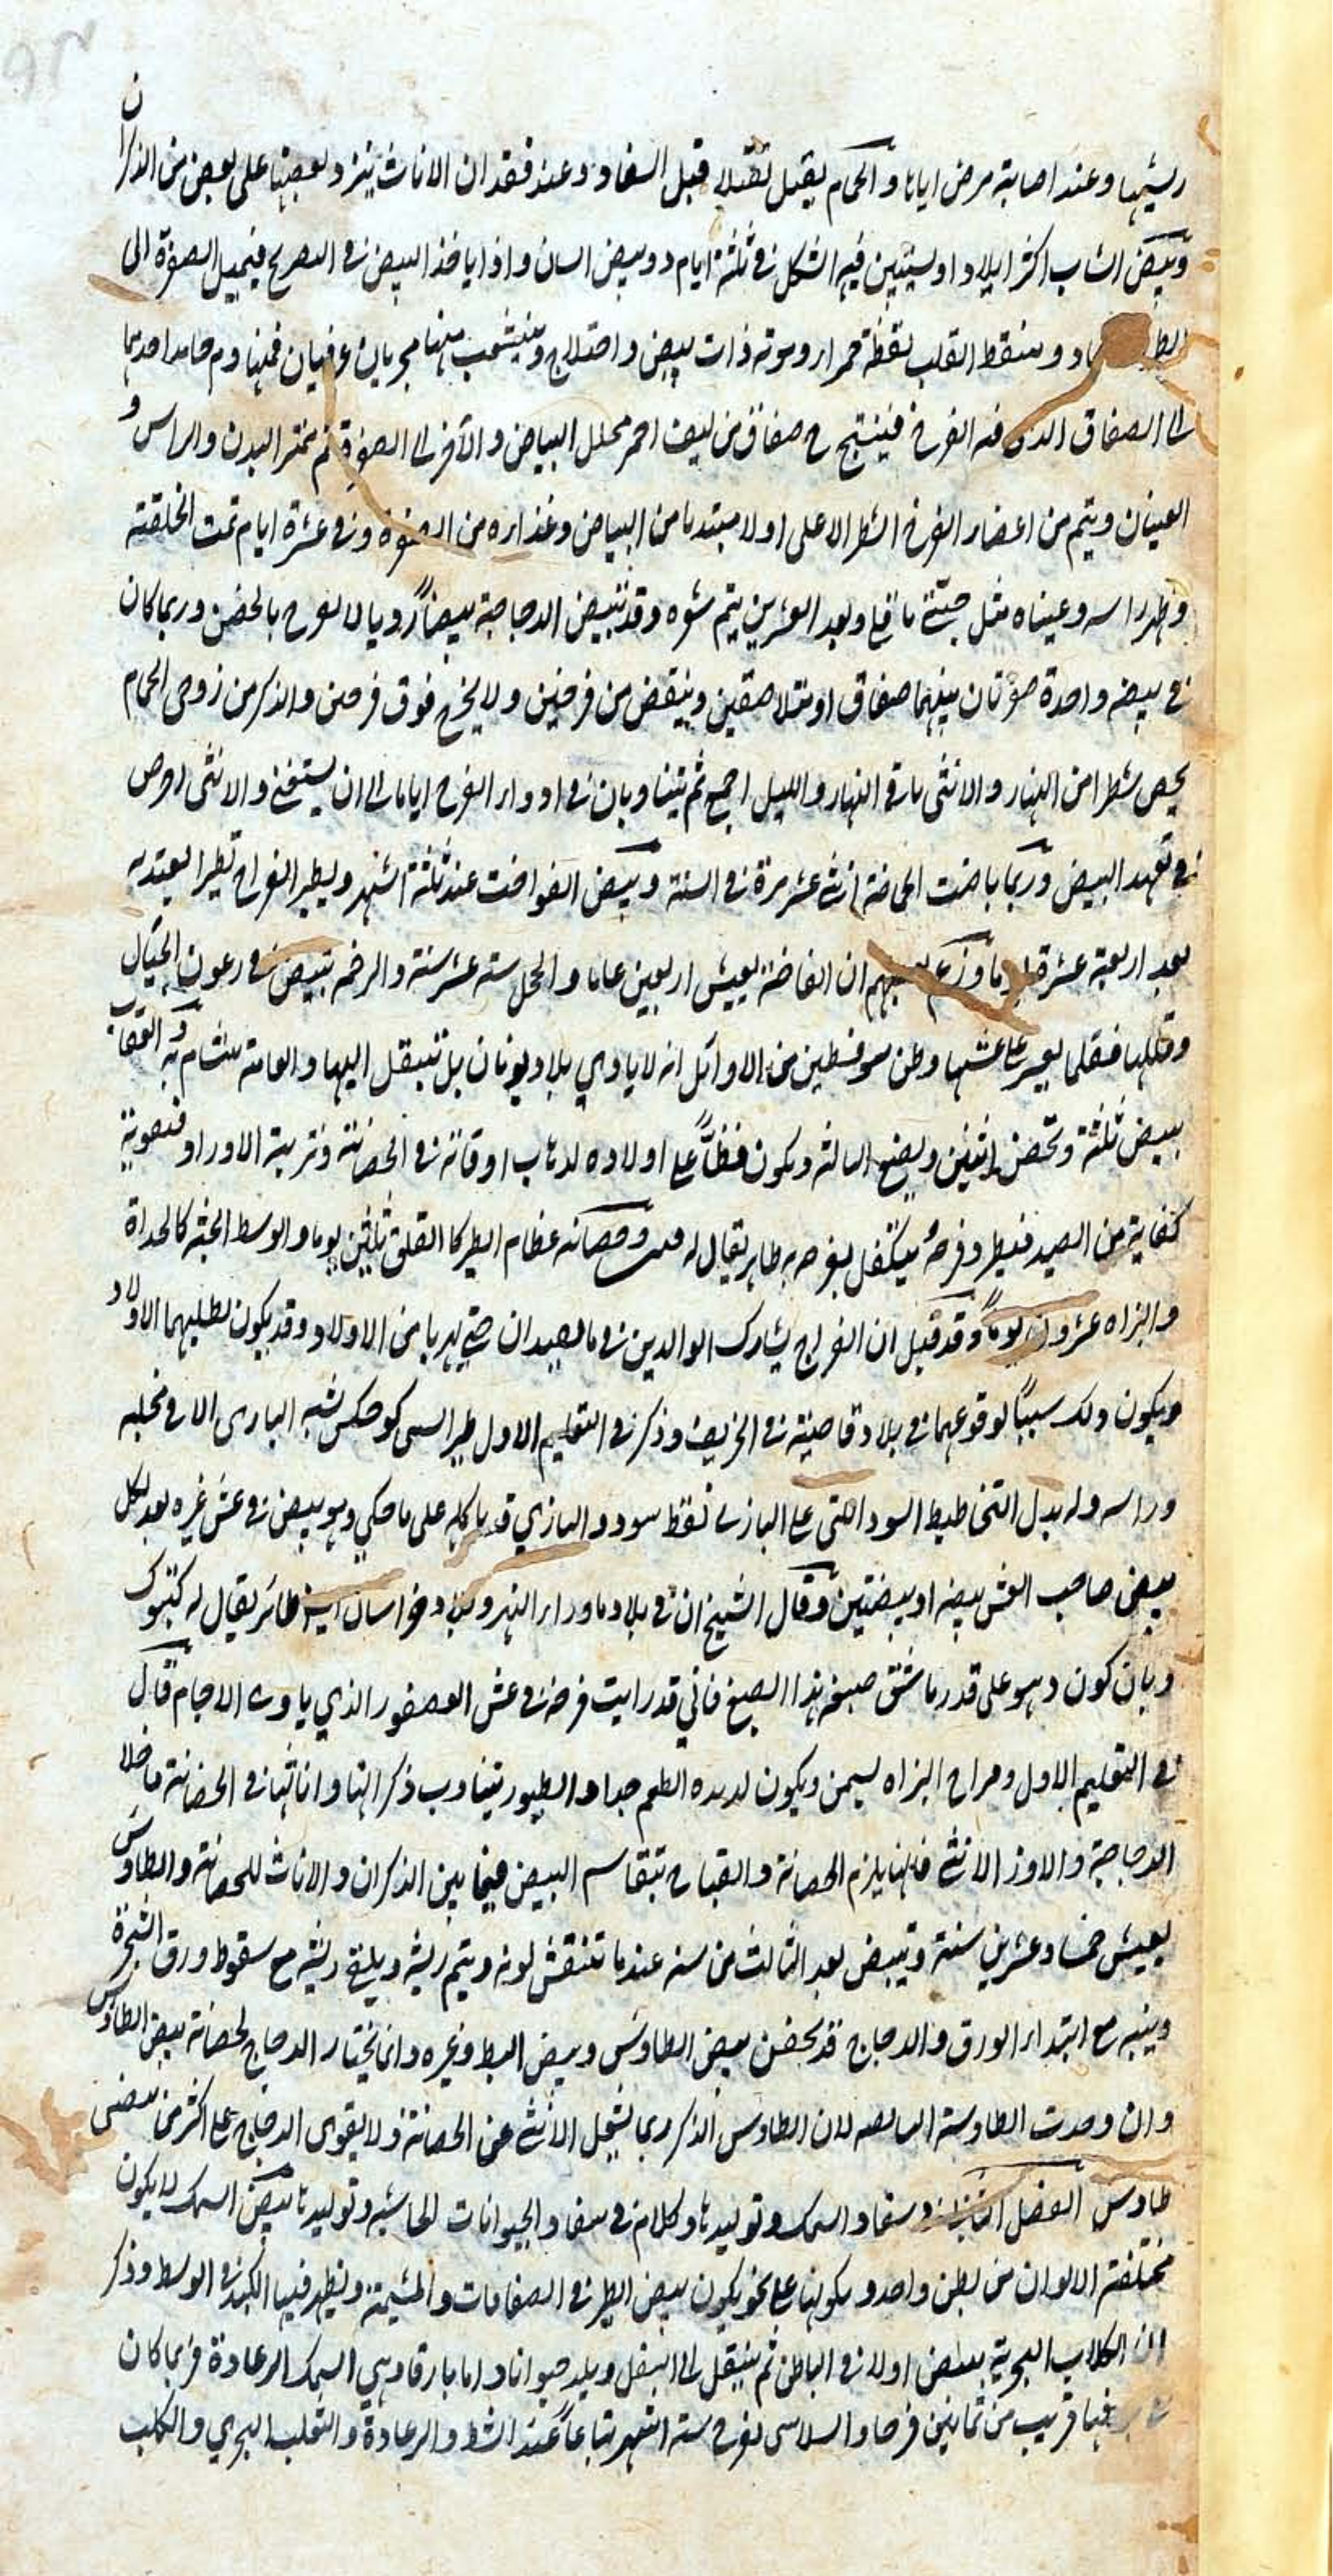 ريشها وعند اصابة مرض اياها والحمام يقبل تقبلا قبل السفاد وعند فقدان الاناث ينزو بعضها على بعض من الذكران
وبيض الشاب اكثر ايلادا ويستبين فيه الشكل في ثلثة ايام دو بيض المسان واذا ياخذ البيض في التفريخ فيميل الصفرة الى
الطرف الحاد وينقط القلب نقطة حمراء دموية ذات نبض واختلاج وينشعب منها مجريان عرقيان فمنها دم حامد احدهما
الى الصفاق الذي فيه الفرخ فينتج ح صفاق من ليف احمر محلل البياض والآخر الى الصفرة ثم يتميز البدن والراس و
العينان ويتم من اعضاء الفرخ الشطر الاعلى اولا مبتدئا من البياض وغذاؤه من الصفرة وفي عشرة ايام تمت الخلقة
وظهر راسه وعيناه مثل حبتى باقلى وبعد العشرين يتم نشوه وقد تبيض الدجاجة بيضا رديا لا يفرخ بالحضن وربما كان
في بيضه واحدة صفرتان بينهما صفاق او متلاصقين وينقض من فرخين ولا يخرج فوق فرخين والذكر من زوجى الحمام
يحضن شطرا من النهار والانثى باقي النهار والليل اجمع ثم يتناوبان في ادواء الفرخ اياما الى ان يستغني والانثى احرص
في تعهد البيض وربما باضت الحاضنة اثنى عشر مرة في السنة وبيض الفواخت عند ثلثة اشهر ويطير الفراخ تطيرا يعتد به
بعد اربعة عشرة يوما وزعم بعضهم ان الفاختة يعيش اربعين عاما والحجل ستة عشر سنة والرخم تبيض في رعون الجبال
وقللها فقلما يعبر على عشها وظن سوفسطين من الاوائل انه لا ياوي بلاد يونان بل تنتقل اليها والعامة تتشام به والعقاب
يبيض ثلثة وتحضن اثنين ويضع الثالثة ويكون فظا على اولاده لذهاب اوقاته في الحضانة وتربية الاولاد وفصوبة
كفاية من الصيد فيطرد فرخه فيتكفل بفرخه طاير يقال له فيني وحضانة عظام الطير كاللقلق ثلثين يوما والوسط الجثة كالحداة
والبزاة عشرون يوما وقد قيل ان الفراخ يشارك الوالدين في ما يصيدان حتى يهربا من الاولاد وقد يكون لطلبهما الاولاد
ويكون ذلك سببا لوقوعهما في بلاد قاصية في الخريف وذكر في التعليم الاول طيرا يسمى كوحكس يشبه البازي الا في مخلبه
وراسه وله بدل التخاطيط السود التي على البازي نقط سود والبازي قد ياكله على ما حكي وهو يبيض في عش غيره بعد اكل
بيض صاحب العش بيضه او بيضتين وقال الشيخ ان في بلاد ما وراء النهر وبلاد خراسان ايضا طائر يقال له كتبوك
وبان كون وهو على قدر باشق صبغه هذا الصبغ فاني قد رايت فرخه في عش العصفور الذي ياوي الاجام وقال
في التعليم الاول وفراخ البزاة يسمن ويكون لذيذة الطعم جدا والطيور يتناوب ذكرانها واناثها في الحضانة ما خلا
الدجاجة والاوز الانثى فانها يلزم الحضانة والقباج تتقاسم البيض فيما بين الذكران والاناث للحضانة والطاوس
يعيش خمسا وعشرين سنة وتبيض بعد الثالث من سنه عندما تنقش لونه ويتم ريشه ويلقي ريشه مع سقوط ورق الشجرة
وينبه مع ابتداء الورق والدجاج قد يحضن بيض الطاوس وبيض البط وغيره وانما يختار الدجاج لحضانة بيض الطاوس
وان وجدت الطاوسة السالمه لان الطاوس الذكر ربما يشغل الانثى عن الحضانة ولا يقوى الدجاج على اكثر من بيضتي
طاوس الفصل الثاني في سفاد السمك وتوليدها وكلام في سفاد الحيوانات الحاشية وتوليدها بيض السمك لا يكون
مختلفة الالوان من بطن واحد ويكونها على نحو يكون بيض الطير في الصفاقات والمشيمة وتظهر فيها الكبد في الوسط وذكر
ان الكلاب البحرية يبيض اولا في الباطن ثم ينتقل الى اسفل ويلد حيوانا واما بارقا وهي السمك الرعادة فربما كان
فيها قريب من ثمانين فرخا والسلاسى يفرخ ستة اشهر تباعا عند الشط والرعادة والثعلب البحري والكلب